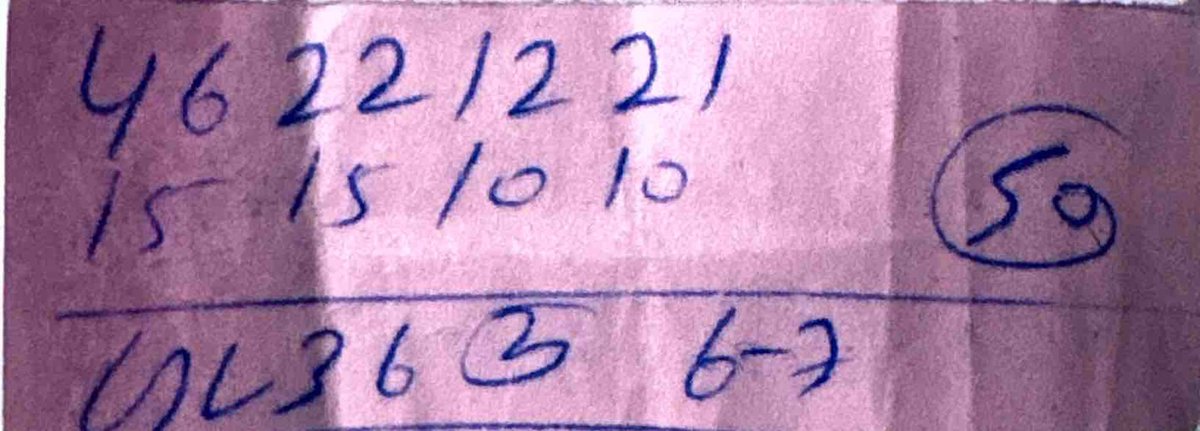 46 22 12 21
15 15 10 10 50
36 3 6-7